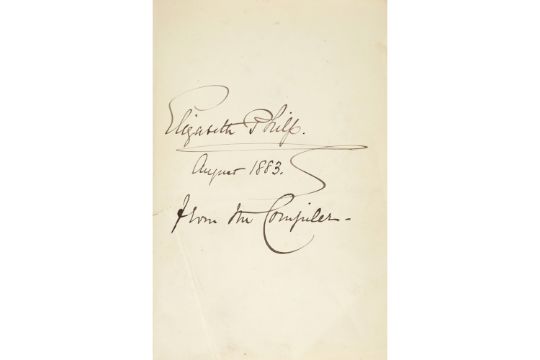 Elizabeth Philp.
August 1883.
from the Compiler -